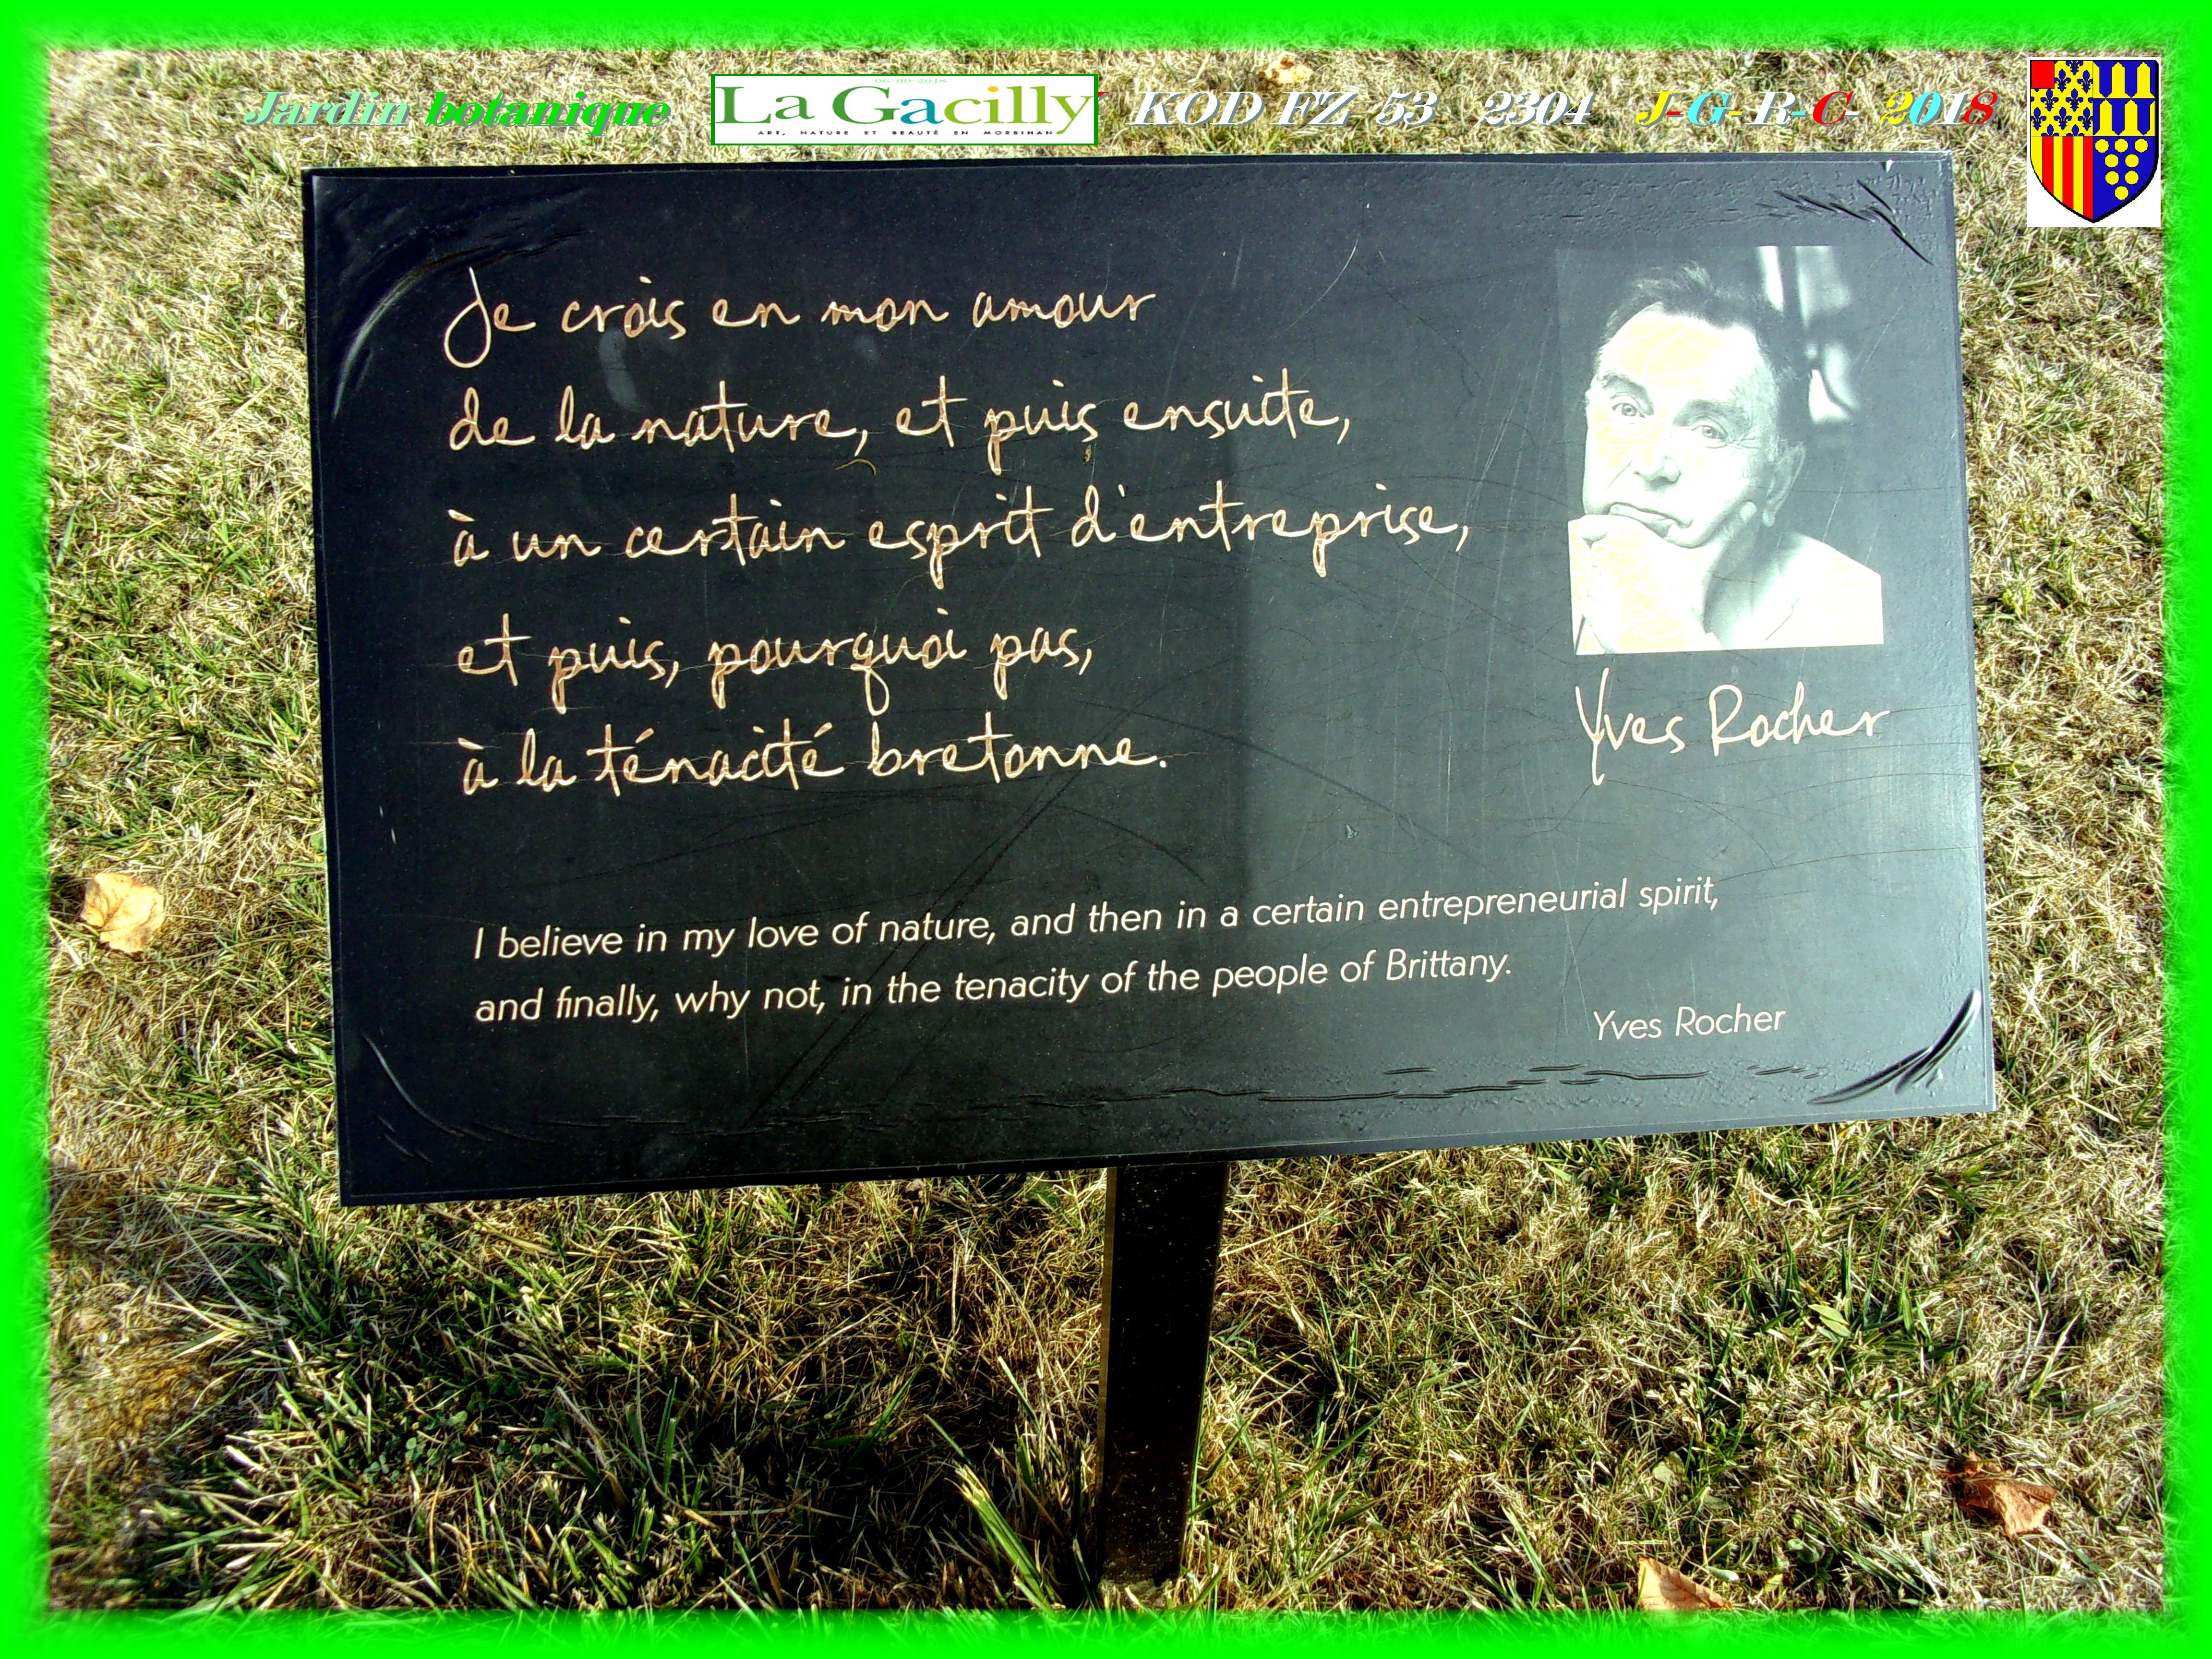 06-09-2018
Jardin botanique La Gacilly KOD FZ 53 2304 J-G-R-C- 2018
ART, NATURE ET BEAUTÉ EN MORBIHAN
Je crois en mon amour
de la nature, et puis ensuite,
à un certain esprit d'entreprise,
et puis, pourquoi pas,
à la ténacité bretonne.
Yves Rocher
I believe in my love of nature, and then in a certain entrepreneurial spirit,
and finally, why not, in the tenacity of the people of Brittany.
Yves Rocher